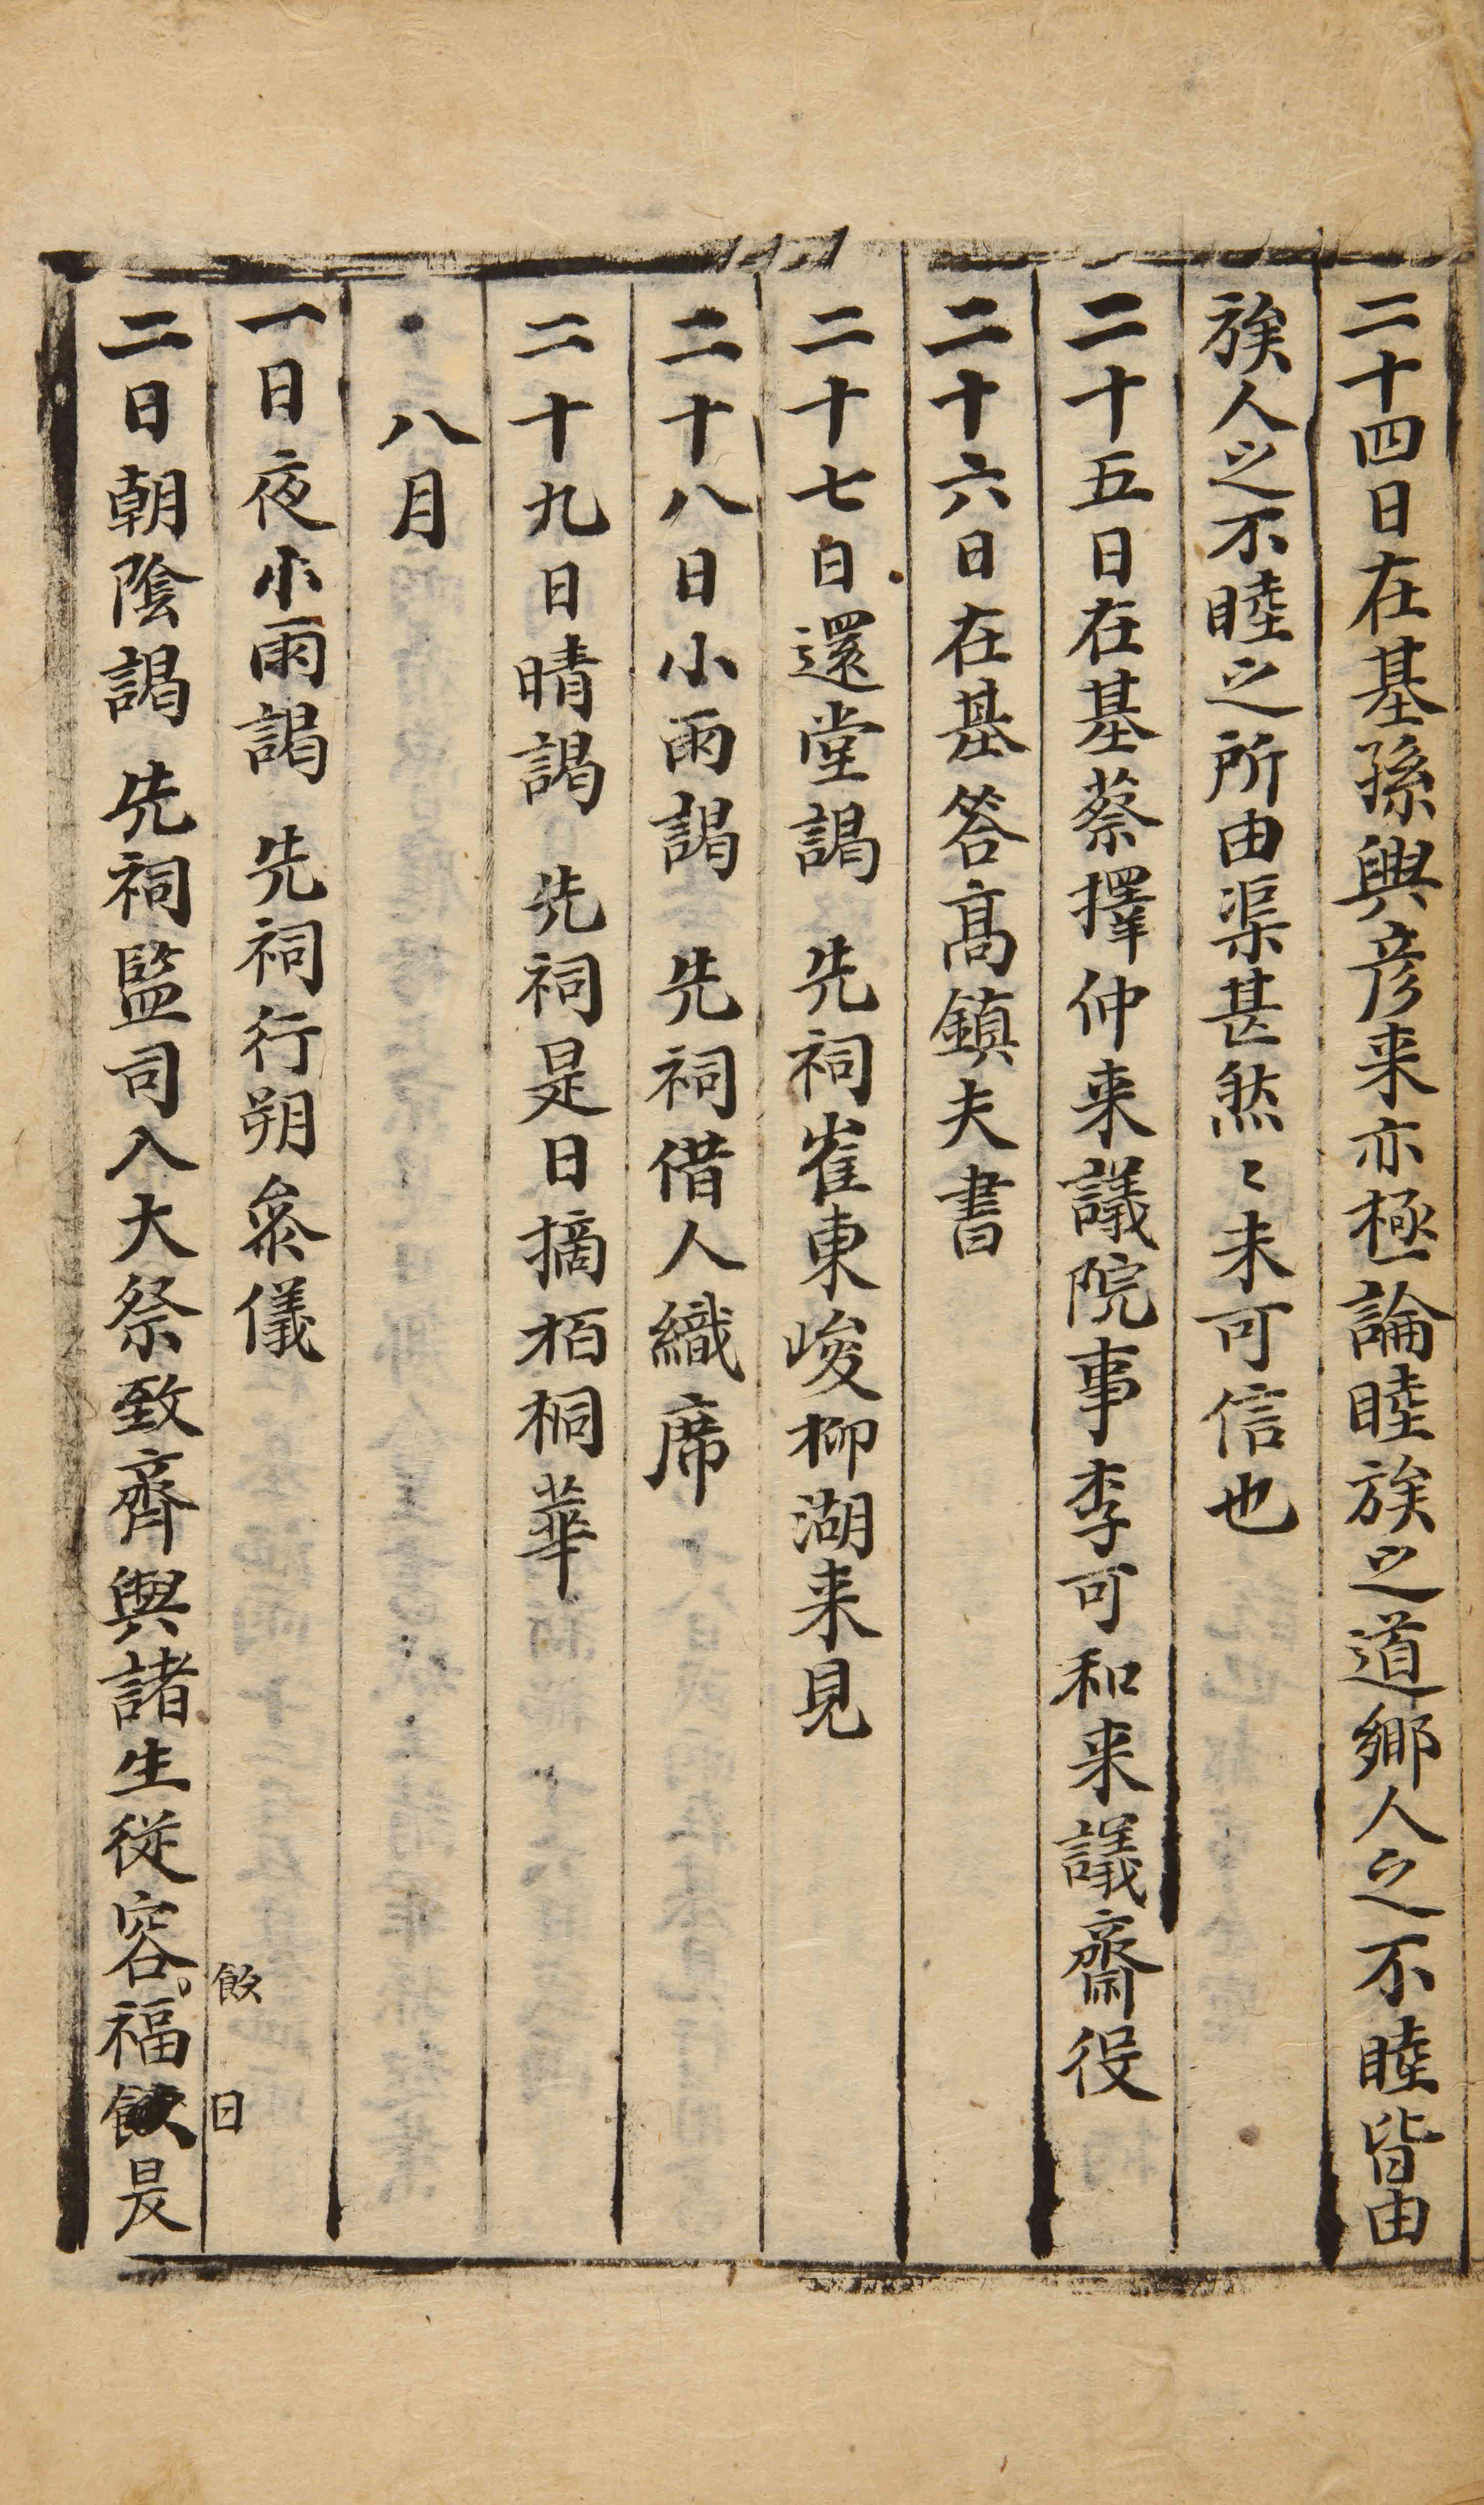 二十四日在基孫興彦来亦極論睦族之道鄉人之不睦皆由
族人之不睦之所由渠甚然〻未可信也
二十五日在基蔡擇仲来議院事李可和来議齋役
二十六日在基答高鎮夫書
二十七日還堂謁 先祠崔東峻柳湖来見
二十八日小雨謁 先祠借人織席
二十九日晴謁 先祠是日摘栢桐華
八月
一日夜小雨謁 先祠行朔叅儀
二日朝陰謁 先祠監司入大祭致齊與諸生從容。福飲是
飲
日